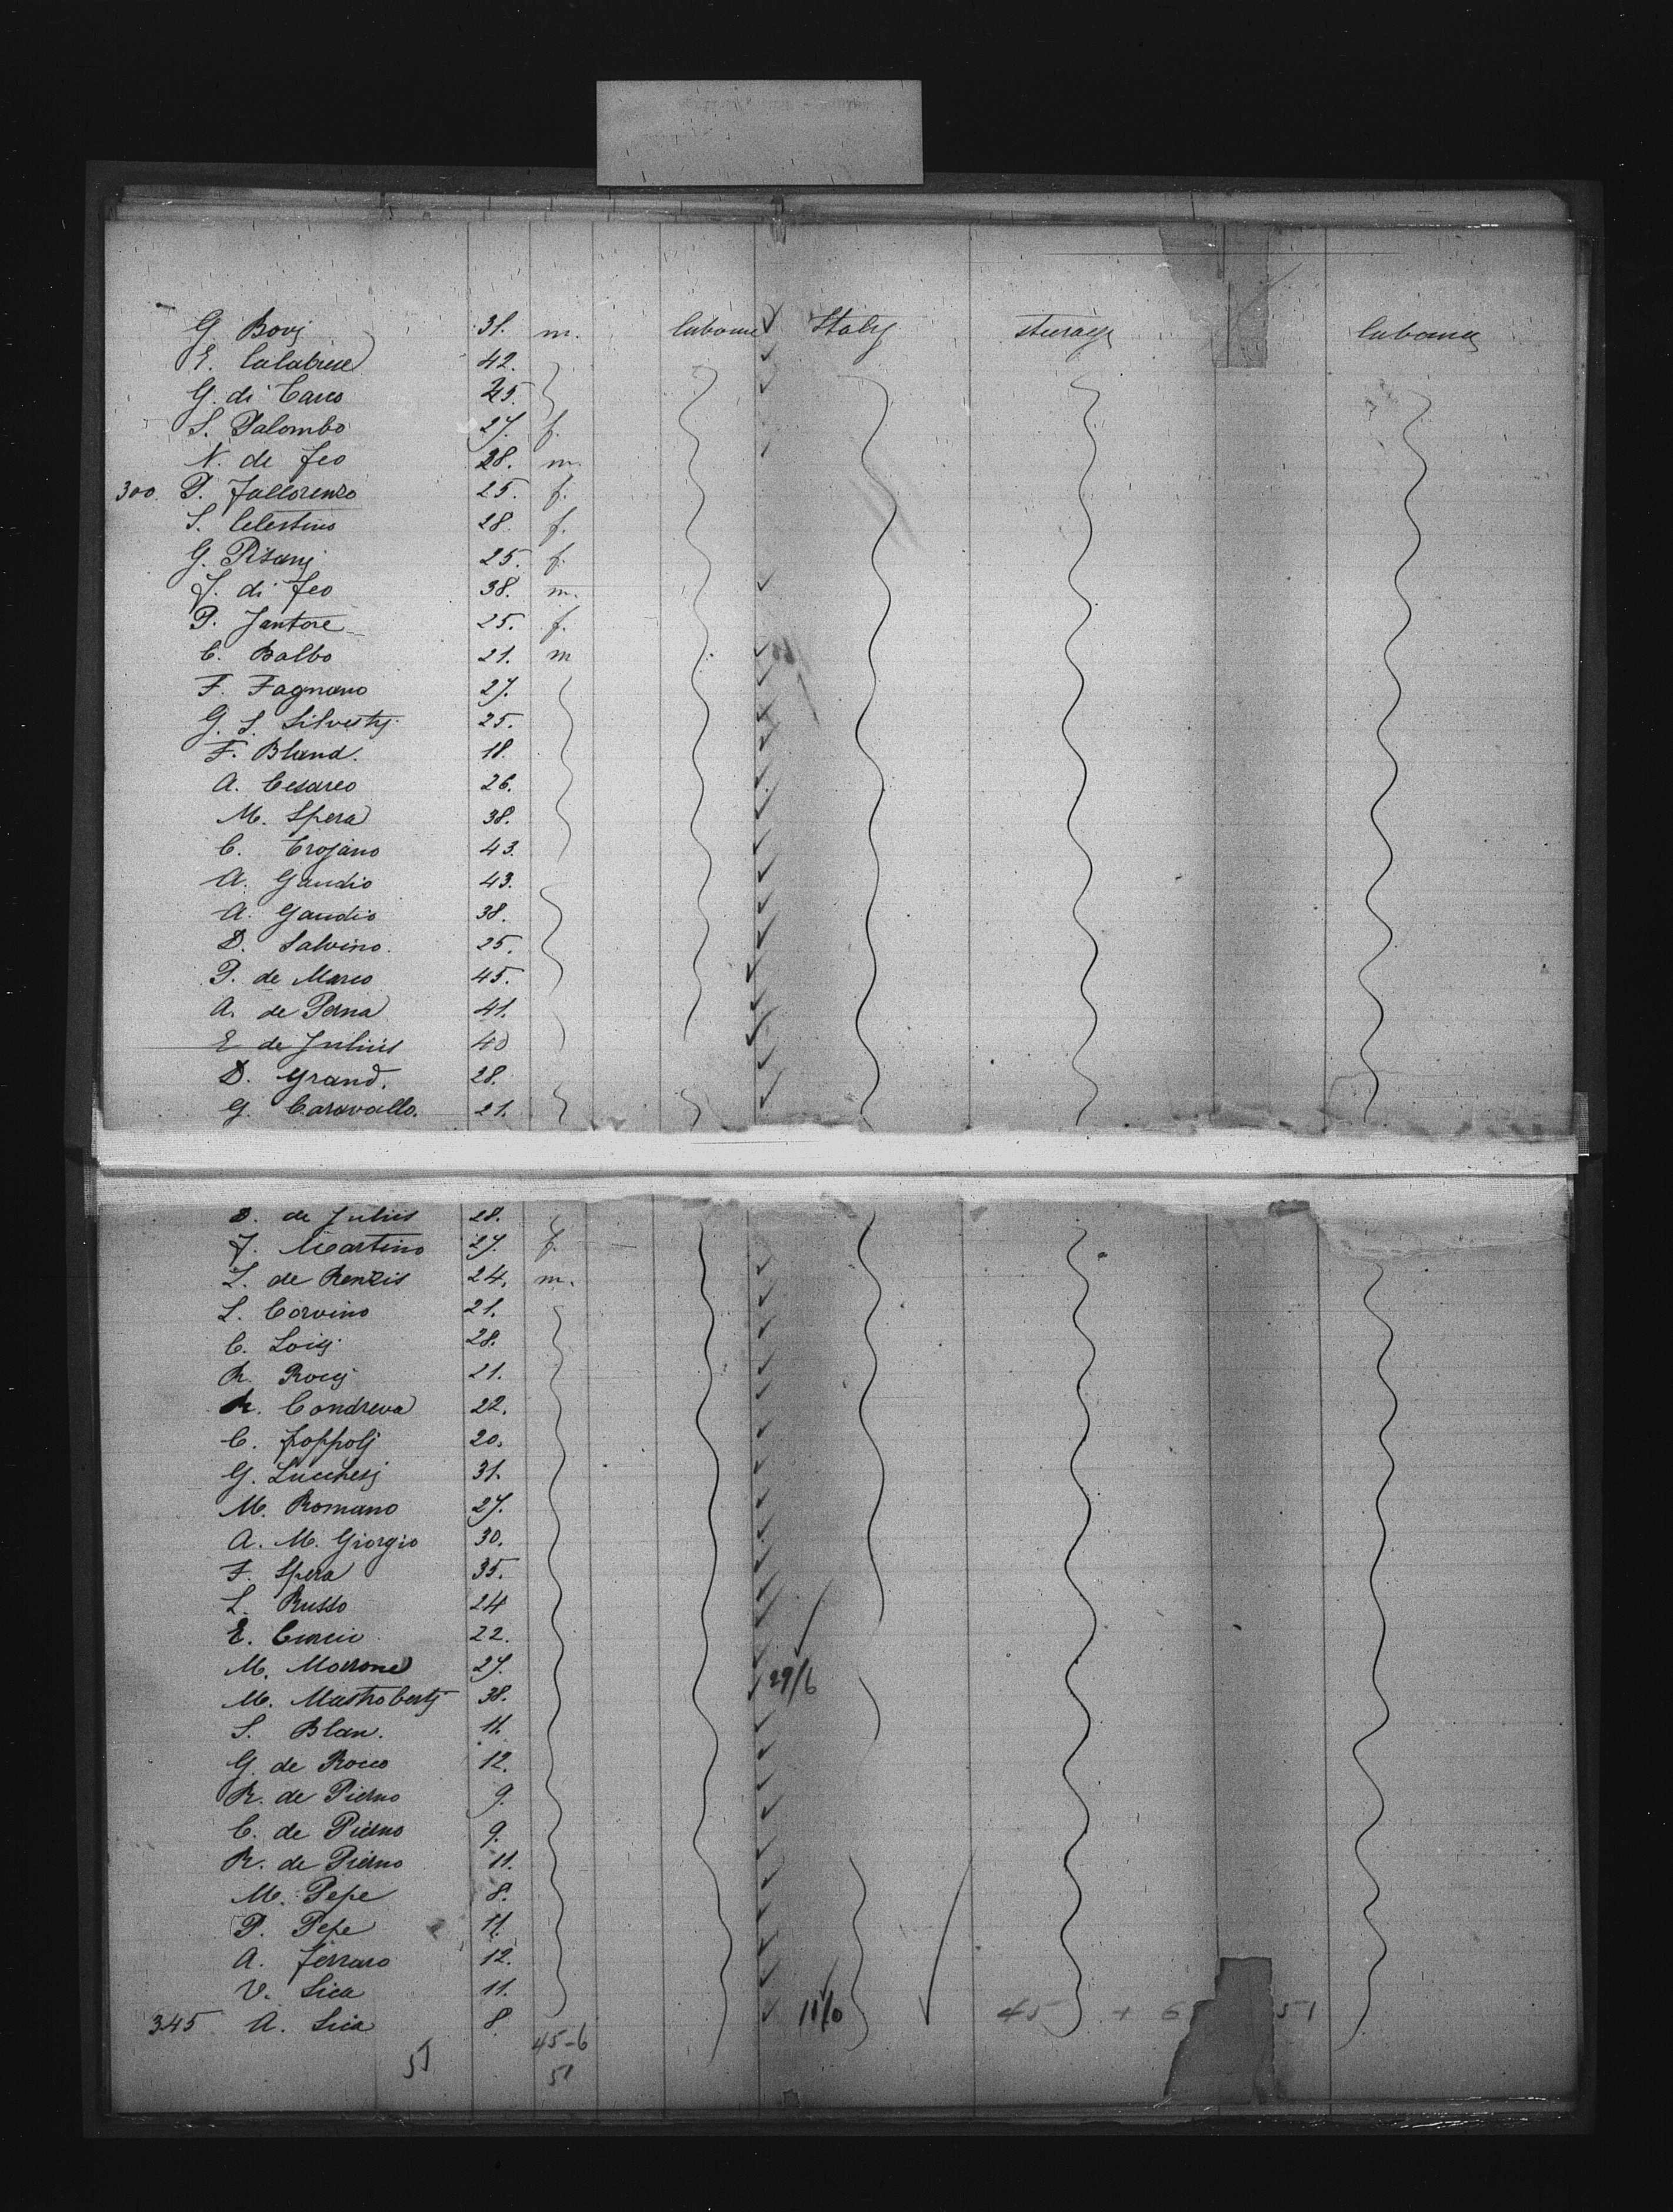 G. Bovj 31. m. labourer Italy steerage labourer
E. Calabrese 42.
G. di Carco 25.
S. Palombo 27. f.
N. de Feo 28. m.
300. P. Jallorenzo 25. f.
S. Celestino 28. f.
G. Pisanj 25. f.
J. di Feo 38. m.
P. Jantore 25. f.
C. Balbo 21. m
F. Fagnano 27.
G. S. Silvestrj 25.
F. Bland. 18.
A. Cesareo 26.
M. Spera 38.
C. Trojano 43.
A. Gaudio 43.
A. Gaudio 38.
D. Salvino. 25.
P. de Marco 45.
A. de Perna 41.
E de Juliis 40
D. Grand. 28.
G. Caravallo. 21.
D. de Juliis 28.
J. Martino 27. f.
L. de Renzis 24. m.
L. Corvino 21.
C. Loisj 28.
R. Rocij 21.
R. Condreva 22.
C. Zoppolj 20.
G. Lucchesj 31.
M. Romano 27.
A. M. Giorgio 30.
F. Spera 35.
L. Russo 24
E. Curcio 22.
M. Morrone 27.
29/6
M. Mastrobertj 38.
S. Blan. 11.
G. de Rocco 12.
R. de Pierno 9.
C. de Pierno 9.
R. de Pierno 11.
M. Pepe 8.
P. Pepe 11.
A. Ferraro 12.
V. Sica 11.
345 A. Sica 8. 11/0 45 + 6 51
45-6
51 51